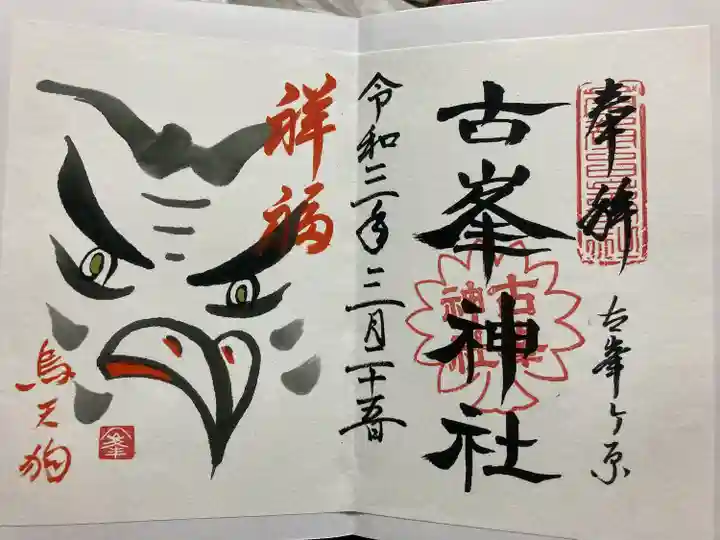 奉拝
古峯ヶ原
古峯神社
古峯神社
令和三年三月二十五日
祥福
烏天狗